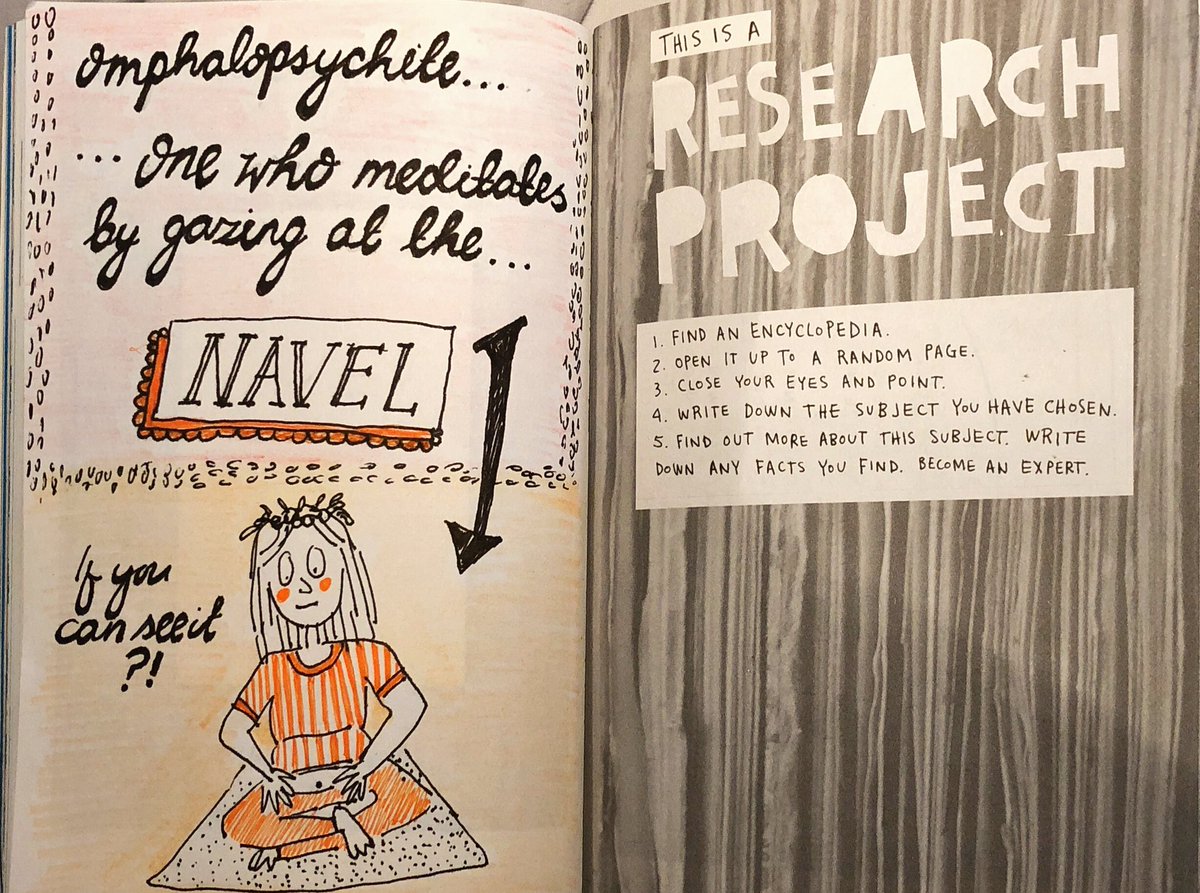 Omphalopsychite...
... One who meditates
by gazing at the...
NAVEL
If you
can see it
?!
THIS IS A
RESEARCH
PROJECT
1. FIND AN ENCYCLOPEDIA.
2. OPEN IT UP TO A RANDOM PAGE.
3. CLOSE YOUR EYES AND POINT.
4. WRITE DOWN THE SUBJECT YOU HAVE CHOSEN.
5. FIND OUT MORE ABOUT THIS SUBJECT. WRITE
DOWN ANY FACTS YOU FIND. BECOME AN EXPERT.